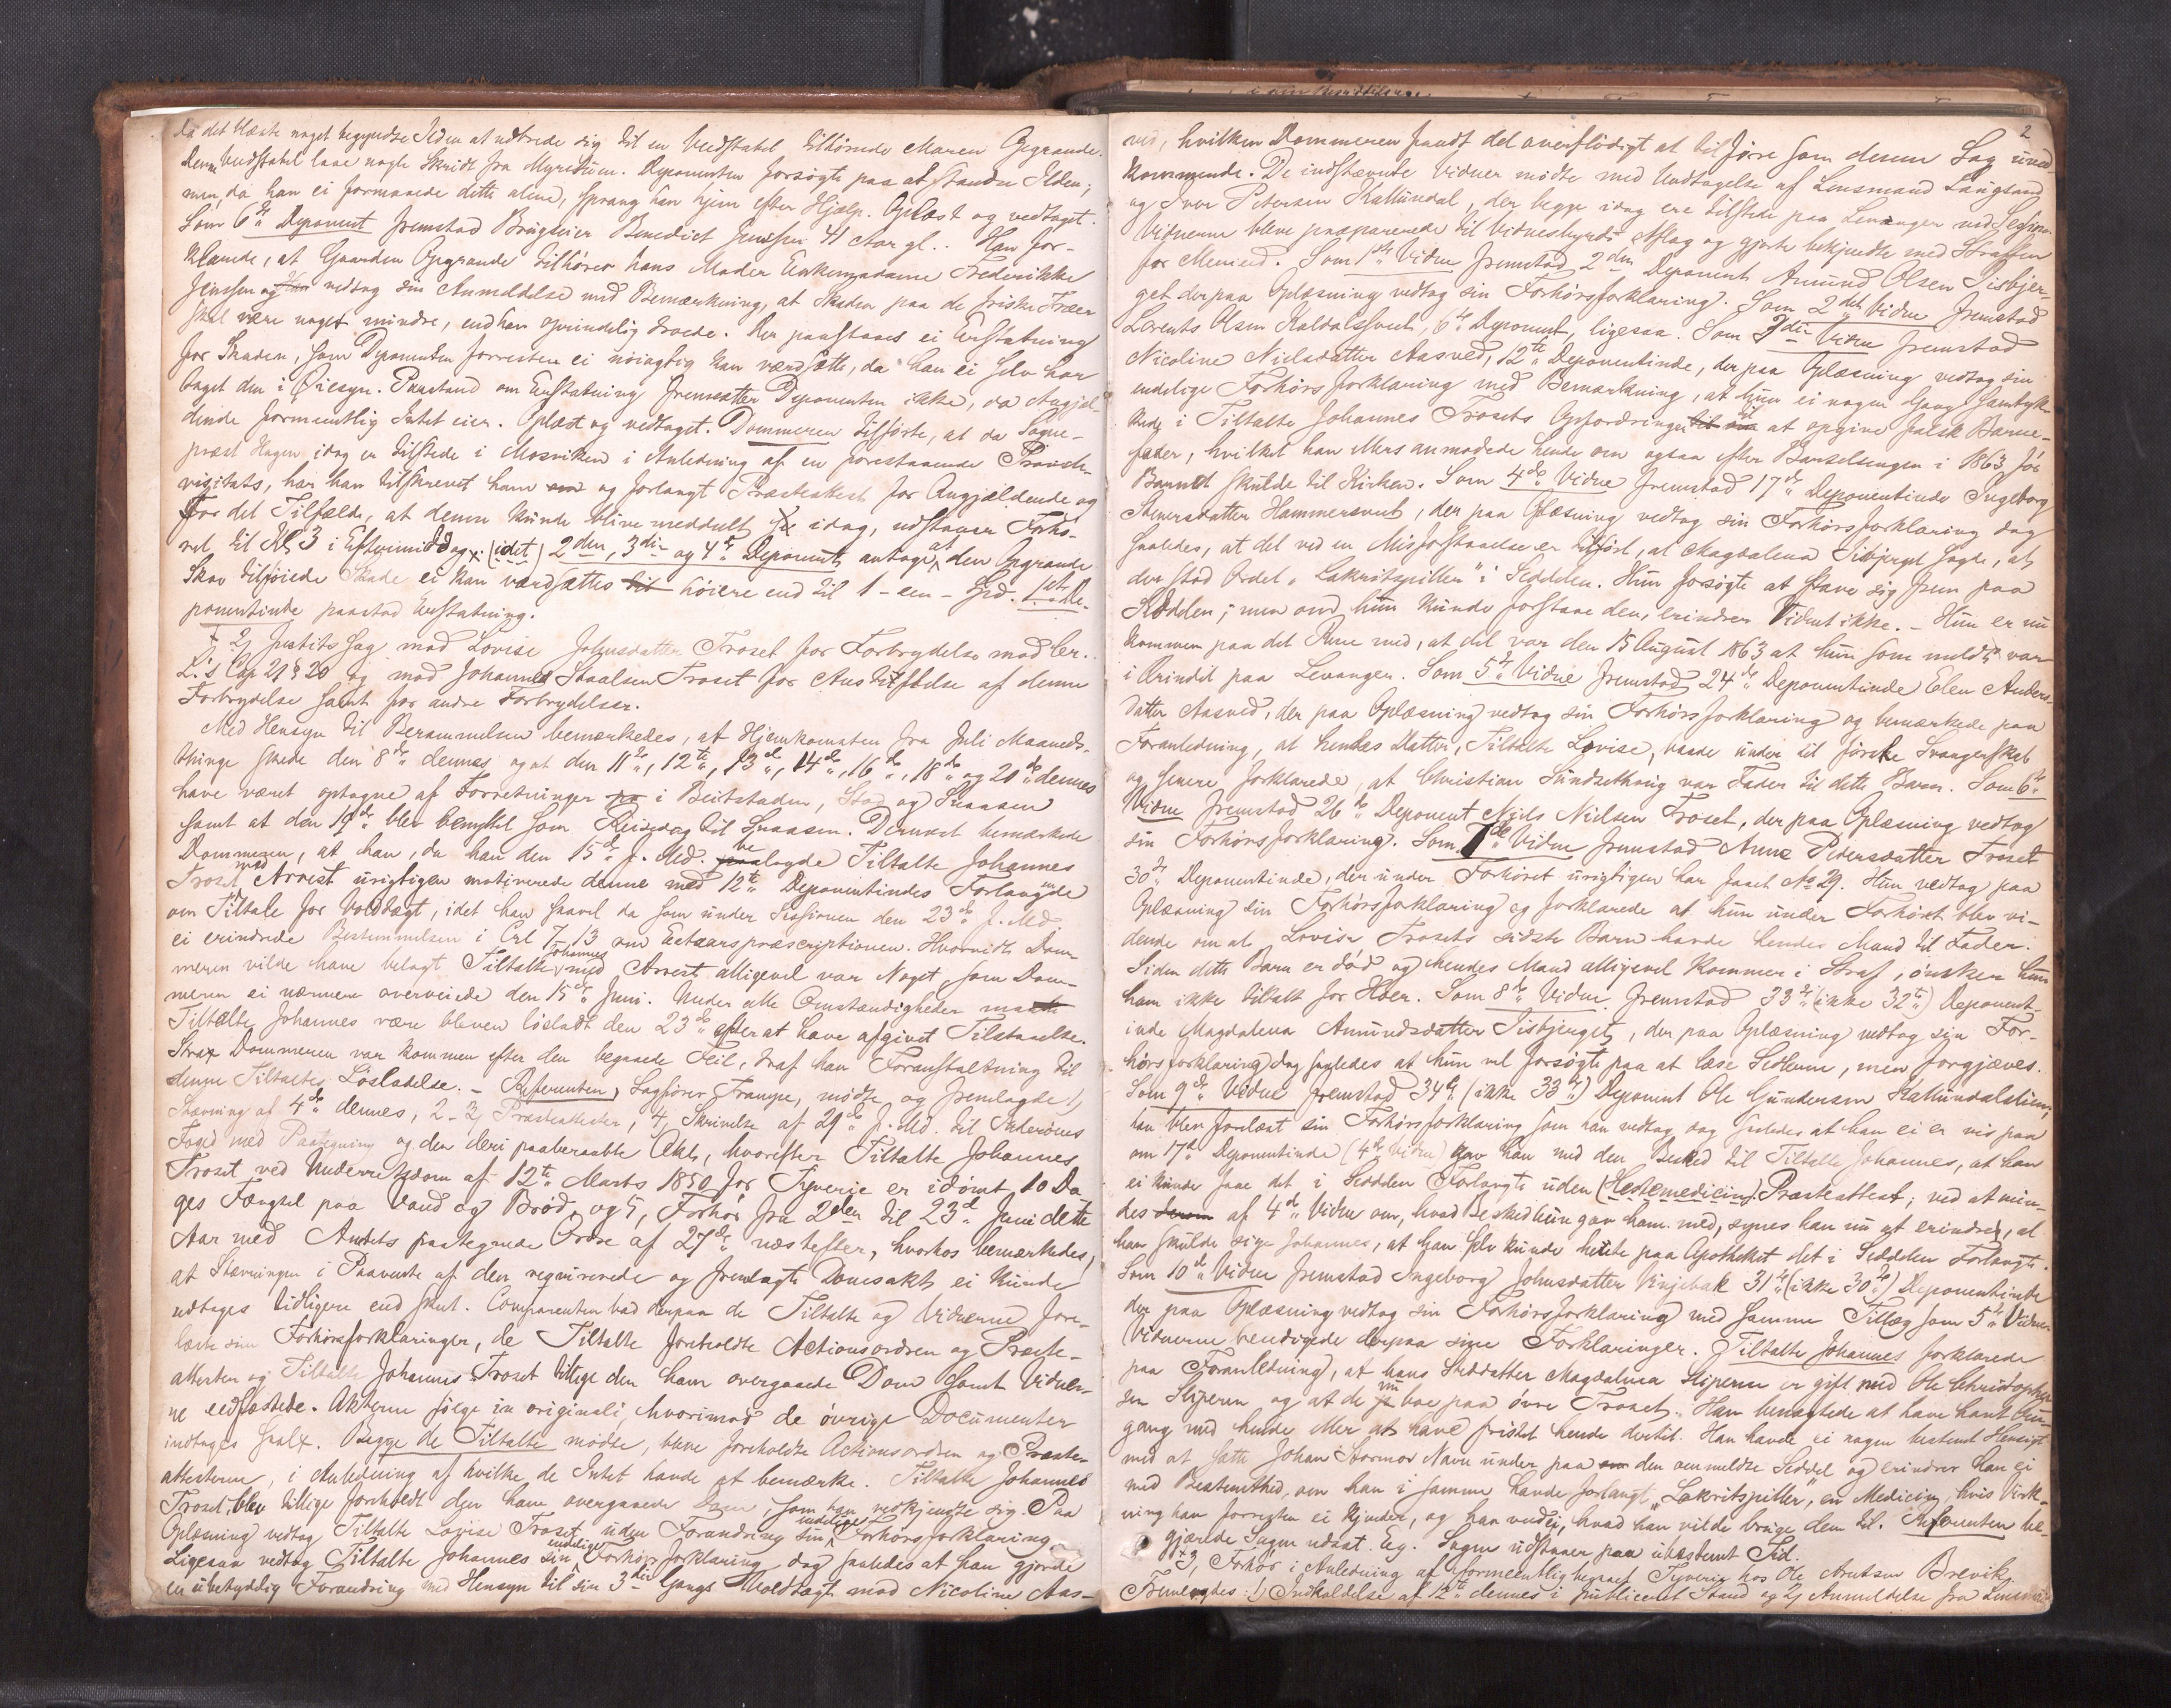 da det blæste noget begyndte Ilden at udbrede sig til en Vedstabel tilhørende Maren Opgrande.
Denne Vedstabel laae nogle Skridt fra Myretuen. Deponenten forsøgte paa at standse Ilden;
men, da han ei formaaede dette alene, sprang han hjem efter Hjælp. Oplæst og vedtaget.
Som 6te Deponent fremstod Brugseier Benedict Jenssen 41 Aar gl.. Han for-
klarede, at Gaarden Opgrande tilhører hans Moder Enkemadame Frederikke
Jenssen og vedtog sin Anmeldelse med Bemærkning, at Skaden paa de friske Træer
skal være noget mindre, end han oprindelig troede. Der paastaaes ei Erstatning
for Skaden, som Deponenten forresten ei nøiagtig kan værdsætte, da han ei selv har
taget den i Øiesyn. Paastand om Erstatning fremsætter Deponenten ikke, da Angjæl-
dende formeentlig Intet eier. Oplæst og vedtaget. Dommeren tilførte, at da Sogne-
præst Hagen idag er tilstede i Mosviken i Anledning af en forestaaende Provste-
visitats, har han tilskrevet ham og forlangt Præsteattest for Angjældende og
For det Tilfælde, at denne kunde blive meddelt idag, udstaaer Forhø-
ret til Kl 3 i Eftermiddag. (idet) 2den, 3die og 4de Deponent antage at den Opgrande
Skov tilføiede Skade ei kan værdsættes til høiere end til 1 - een - Spd. 1ste De-
ponentinde paastod Erstatning.
2, Justits Sag mod Lovise Johnsdatter Troset for Forbrydelse mod Cr.
L.'s Cap 21 § 20 og mod Johannes Staalsen Troset for Anstiftelse af denne
Forbrydelse samt for andre Forbrydelser.
Med Hensyn til Berammelsen bemærkedes, at Hjemkomsten fra Juli Maaneds-
thinge skede den 8de dennes og at den 11te, 12te, 13de, 14de, 16de, 18de og 20de dennes
have været optagne af Forretninger i Beitstaden, Stod og Snaasen
samt at den 19de blev benyttet som Reisedag til Snaasen. Dernæst bemærkede
Dommeren, at han, da han den 15de f. Md. belagde Tiltalte Johannes
Troset med Arrest urigtigen motiverede denne med 12te Deponentindes Forlangende
om Tiltale for Voldtægt, idet han saavel da som under Sessionen den 23de f. Md
ei erindrede Bestemmelsen i Crl 7, 13 om Eetaarspræscriptionen. Hvorvidt Dom-
meren vilde have belagt Tiltalte Johannes med Arrest alligevel var Noget, som Dom-
meren ei nærmere overveiede den 15de Juni. Under alle Omstændigheder maatte
Tiltalte Johannes være bleven løsladt den 23de efter at have afgivet Tilstaaelse.
Strax Dommeren var kommen efter den begaaede Feil, traf han Foranstaltning til
denne Tiltaltes Løsladelse. - Referenten, Sagfører Trampe, mødte og fremlagde 1,
Stævning af 4de dennes, 2-3, Præsteattester, 4, Skrivelse af 29de f. Md. til Inderøens
Foged med Paategning og den deri paaberaabte Akt, hvorefter Tiltalte Johannes
Troset ved Underretsdom af 12te Marts 1850 for Tyverie er idømt 10 Da-
ges Fængsel paa Vand og Brød, og 5, Forhør fra 2den til 23de Juni dette
Aar med Amtets paategnede Ordre af 27de næstefter, hvorhos bemærkedes,
at Stævningen i Paavente af den requirerede og fremlagte Domsakt ei kunde
udtages tidligere end skeet. Comparenten bad derpaa de Tiltalte og Vidnerne fore-
læste sine Forhørsforklaringer, de Tiltalte foreholdte Actionsordren og Præste-
attesten og Tiltalte Johannes Troset tillige den ham overgaaede Dom samt Vidner-
ne eedfæstede. Akterne følge in originali, hvorimod de øvrige Documenter
indtages saal. Begge de Tiltalte mødte, bleve foreholdte Actionsordren og Præste-
attesterne, i Anledning af hvilke de Intet havde at bemærke. Tiltalte Johannes
Troset blev tillige foreholdt den ham overgaaede Dom, som han vedkjendte sig. Paa
Oplæsning vedtog Tiltalte Lovise Troset uden Forandring sin endelige Forhørsforklaring
Ligesaa vedtog Tiltalte Johannes sin endelige Forhørsforklaring dog saaledes at han gjorde
en ubetydelig Forandring med Hensyn til sin 3die Gangs Voldtægt mod Nicoline Aas-
2
ved, hvilken Dommeren fandt det overflødigt at tilføre som denne Sag uved-
kommende. De indstævnte Vidner mødte med Undtagelse af Lensmand Laugsand
og Iver Petersen Kattundal, der begge idag ere tilstede paa Levanger ved Session
Vidnerne bleve præparerede til Vidnesbyrds Aflæg og gjorte bekjendte med Straffen
for Meneed. Som 1ste Vidne fremstod 2den Deponent Amund Olsen Tisbjer-
get der paa Oplæsning vedtog sin Forhørsforklaring. Som 2det Vidne fremstod
Lorents Olsen Kaldalssveet, 6te Deponent, ligesaa. Som 3die Vidne fremstod
Nicoline Nielsdatter Aasved, 12te Deponentinde, der paa Oplæsning vedtog sin
endelige Forhørsforklaring med Bemærkning, at hun ei nogen Gang samtyk-
kede i Tiltalte Johannes Trosets Opfordringer til at opgive falsk Barne-
fader, hvilket han ellers anmodede hende om ogsaa efter Barselsengen i 1863 før
Barnet skulde til Kirken. Som 4de Vidne fremstod 17de Deponentinde Ingeborg
Steenersdatter Hammersveet, der paa Oplæsning vedtog sin Forhørsforklaring dog
saaledes, at det ved en Misforstaaelse er tilført, at Magdalena Tisbjerget sagde, at
der stod Ordet "Lakritspiller" i Seddelen. Hun forsøgte at stave sig frem paa
Seddelen; men om hun kunde forstaae den, erindrer Vidnet ikke. - Hun er nu
kommen paa det Rene med, at det var den 15 August 1863 at hun som meldt var
i Ærindet paa Levanger. Som 5te Vidne fremstod 24de Deponentinde Elen Anders-
datter Aasved, der paa Oplæsning vedtog sin Forhørsforklaring og bemærkede paa
Foranledning, at hendes Datter, Tiltalte Lovise, baade under sit første Svangerskab
og senere forklarede, at Christian Sundsethaug var Fader til dette Barn. Som 6te
Vidne fremstod 26de Deponent Niels Nielsen Troset, der paa Oplæsning vedtog
sin Forhørsforklaring. Som 7de Vidne fremstod Anne Petersdatter Troset
30te Deponentinde, der under Forhøret urigtigen har faaet No 29. Hun vedtog paa
Oplæsning sin Forhørsforklaring og forklarede at hun under Forhøret blev vi-
dende om at Lovise Trosets sidste Barn havde hendes Mand til Fader.
Siden dette Barn er død og hendes Mand alligevel kommer i Straf, ønsker hun
ham ikke tiltalt for Hoer. Som 8de Vidne fremstod 33te (ikke 32te) Deponent-
inde Magdalena Amundsdatter Tisbjerget, der paa Oplæsning vedtog sin For-
hørsforklaring dog saaledes at hun vel forsøgte paa at læse Sedlerne, men forgjæves.
Som 9de Vidne fremstod 34te (ikke 33te) Deponent Ole Gundersen Kattundalslien,
han blev forelæst sin Forhørsforklaring som han vedtog dog saaledes at han ei er vis paa
om 17de Deponentinde (4de Vidne) gav ham med den Besked til Tiltalte Johannes, at han
ei kunde faae det i Seddelen Forlangte uden (Hestemedicin) Præsteattest; ved at min-
des af 4de Vidne om, hvad Besked hun gav ham med, synes han nu at erindre, at
han skulde sige Johannes, at han selv kunde hente paa Apotheket det i Seddelen Forlangte.
Som 10de Vidne fremstod Ingeborg Johnsdatter Vinjebak 31te (ikke 30te) Deponentinde
der paa Oplæsning vedtog sin Forhørsforklaring med samme Tillæg som 5te Vidne
Vidnerne beedigede derpaa sine Forklaringer. Tiltalte Johannes forklarede
paa Foranledning, at hans Steddatter Magdalena Stiperen er gift med Ole Christopher-
sen Stiperen og at de nu boe paa øvre Troset. Han benægtede at have havt Om-
gang med hende eller at have fristet hende dertil. Han havde ei nogen bestemt Hensigt
med at sætte Johan Stormos Navn under paa den ommeldte Seddel og erindrer han ei
med Bestemthed, om han i samme havde forlangt "Lakritspiller", en Medicin, hvis Virk-
ning han forresten ei kjender, og han veed ei, hvad han vilde bruge den til. Referenten be-
gjærede Sagen udsat. Eq. Sagen udstaaer paa ubestemt Tid.
3, Forhør i Anledning af formeentlig begaaet Tyverie hos Ole Arntsen Brevik.
Fremlagdes: 1, Indkaldelse af 12te dennes i publiceret Stand og 2, Anmeldelse fra